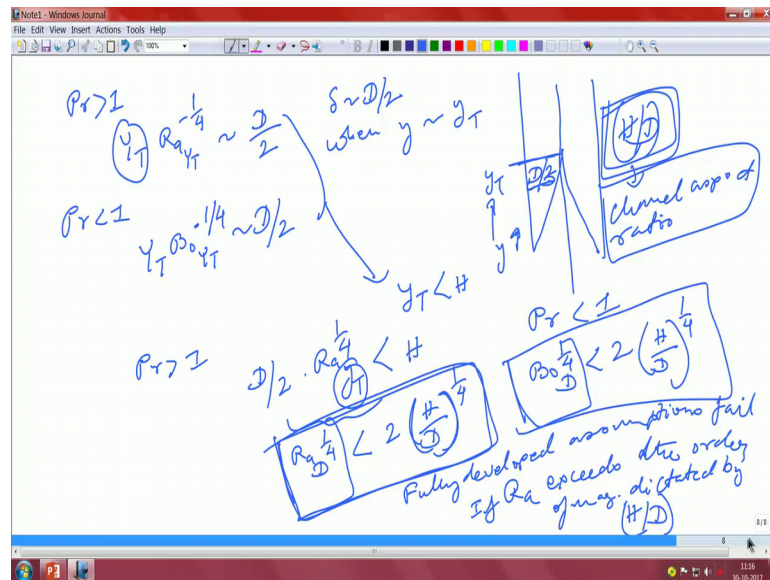 Note1 - Windows Journal
File Edit View Insert Actions Tools Help
100%
Pr>1
Y_T Ra_{Y_T}^{-1/4} ~ D/2
δ ~ D/2
when y ~ y_T
H/D
channel aspect ratio
y_T
D/2
y
Pr<1
Y_T Bo_{Y_T}^{-1/4} ~ D/2
y_T < H
Pr>1
D/2 . Ra_{y_T}^{1/4} < H
Ra_D^{1/4} < 2 (H/D)^{1/4}
Pr < 1
Bo_D^{1/4} < 2 (H/D)^{1/4}
Fully developed assumptions fail
If Ra exceeds the order
of mag. dictated by
(H/D)
8/8
8
11:16
30-10-2017